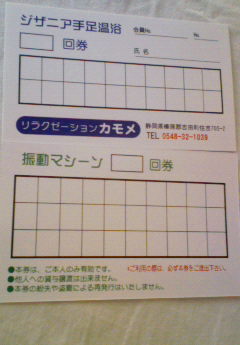 ジザニア手足温浴
会員No. No.
回券
氏名
リラクゼーション カモメ
静岡県榛原郡吉田町住吉765-2
TEL 0548-32-1039
振動マシーン 回券
●本券は、ご本人のみ有効です。 *ご利用の際は、必ず本券をご提出下さい。
●他人への貸与譲渡は出来ません。
●本券の紛失や盗難による再発行はいたしません。